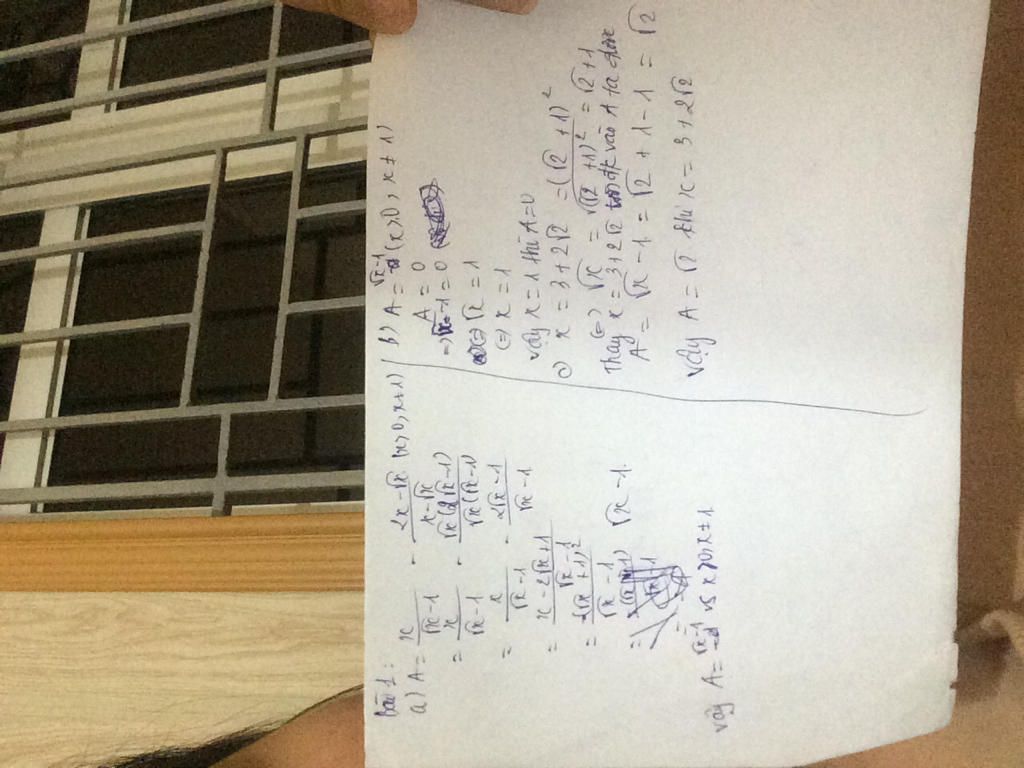 Bài 1:
a) A = x/(√x-1) - (2x-√x)/(x-√x) (x>0, x≠1)
= x/(√x-1) - √x(2√x-1)/(√x(√x-1))
= x/(√x-1) - (2√x-1)/(√x-1)
= (x-2√x+1)/(√x-1)
= (√x+1)²/(√x-1)
= √x-1
Vậy A = √x-1 vs x>0, x≠1
b) A = √x-1 (x>0, x≠1)
A = 0
=> √x-1 = 0
(=) √x = 1
(=) x = 1
Vậy x = 1 thì A=0
c) x = 3+2√2 = (√2+1)²
(=) √x = √(√2+1)² = √2+1
Thay x = 3+2√2 tmđk vào A ta được
A = √x-1 = √2+1-1 = √2
Vậy A = √2 khi x = 3+2√2